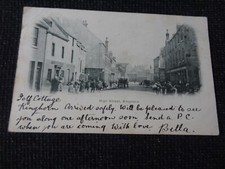 High Street, Kinghorn
Golf Cottage
Kinghorn Arrived safely. Will be pleased to see
you along one afternoon soon Send a P.C.
when you are coming With love Bella.